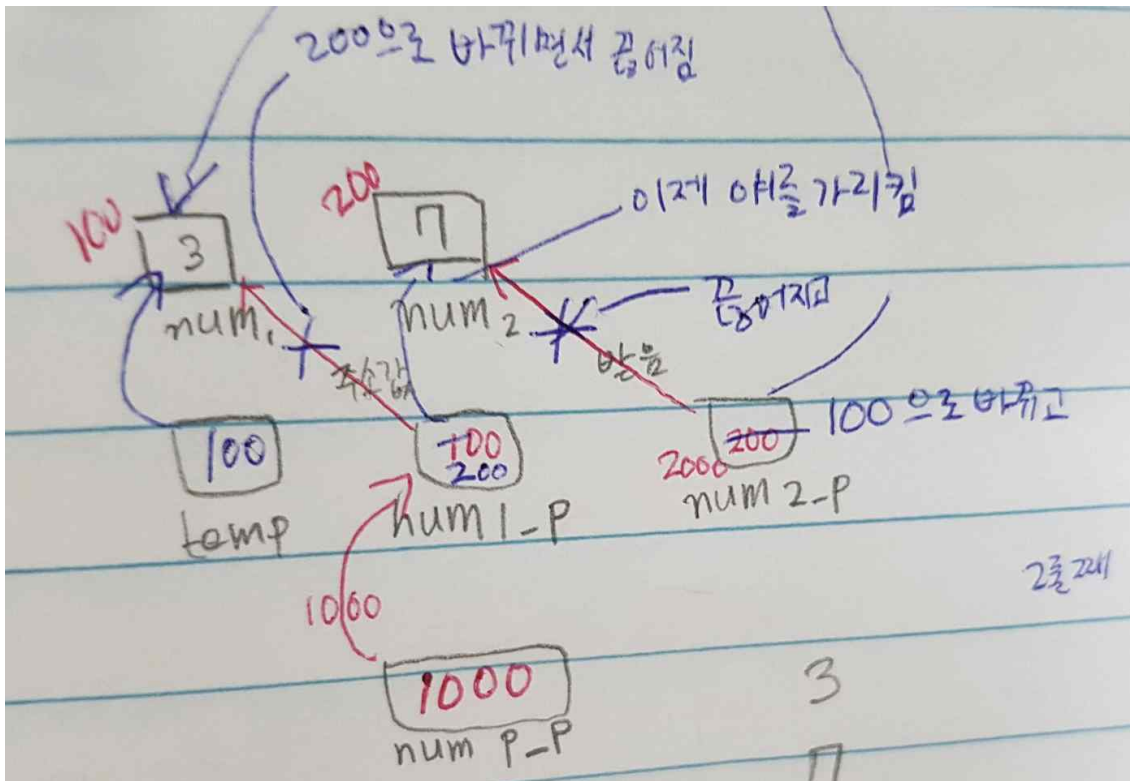 200으로 바뀌면서 끊어짐
100
3
num1
200
7
num2
이제 얘를 가리킴
끊어지고
주소값
받음
100
temp
100
200
num1_p
2000
200
100으로 바뀌고
num2_p
1000
1000
num p_p
2줄째
3
7